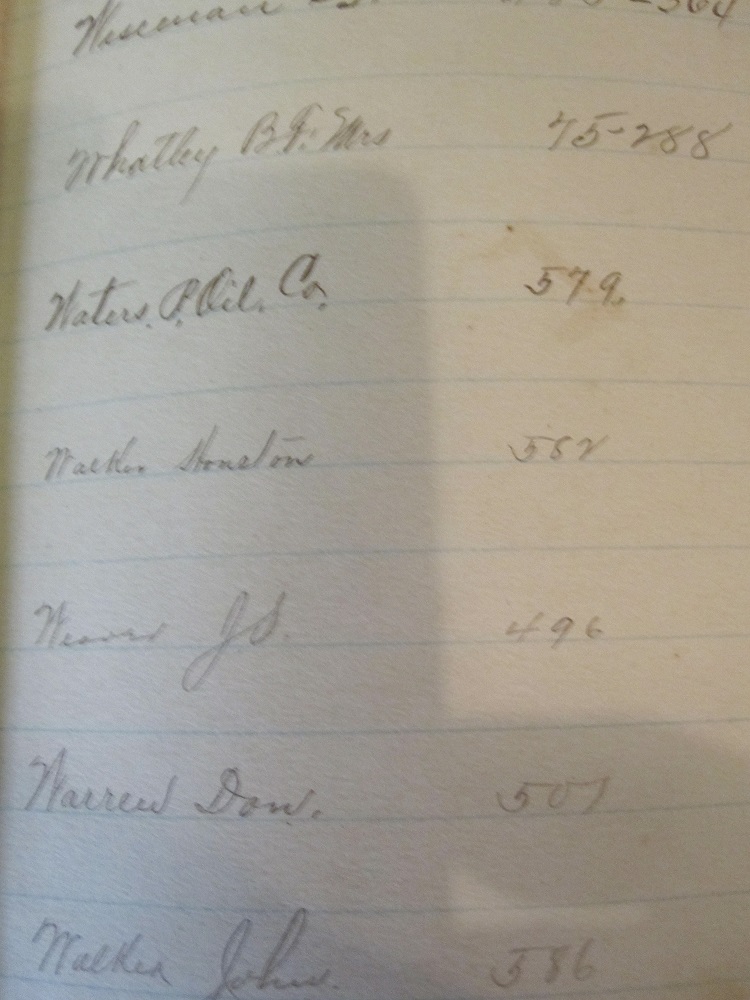 Wiseman
Whatley B.F. Mrs 75-288
Waters. P. Oil. Co. 579.
Walker Houston 582
Weaver J.S. 496
Warren Don. 507
Walker John. 586